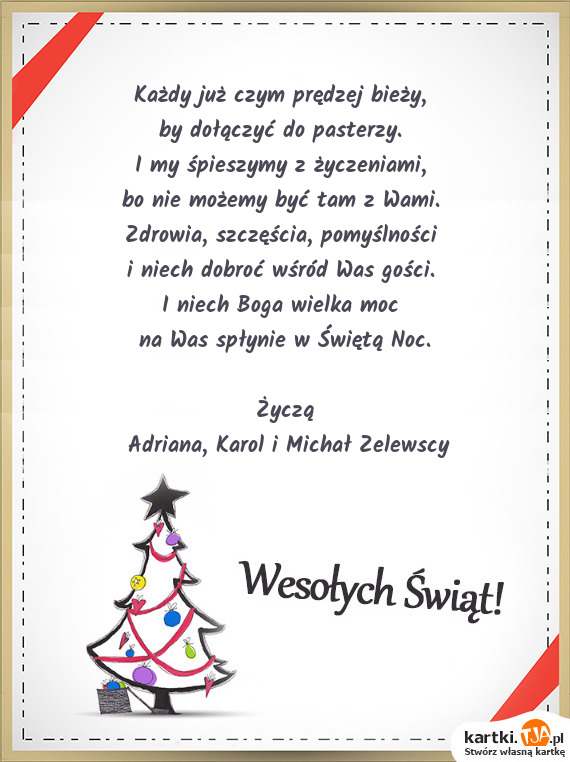 Każdy już czym prędzej bieży,
by dołączyć do pasterzy.
I my śpieszymy z życzeniami,
bo nie możemy być tam z Wami.
Zdrowia, szczęścia, pomyślności
i niech dobroć wśród Was gości.
I niech Boga wielka moc
na Was spłynie w Świętą Noc.
Życzą
Adriana, Karol i Michał Zelewscy
Wesołych Świąt!
kartki.TJA.pl
Stwórz własną kartkę